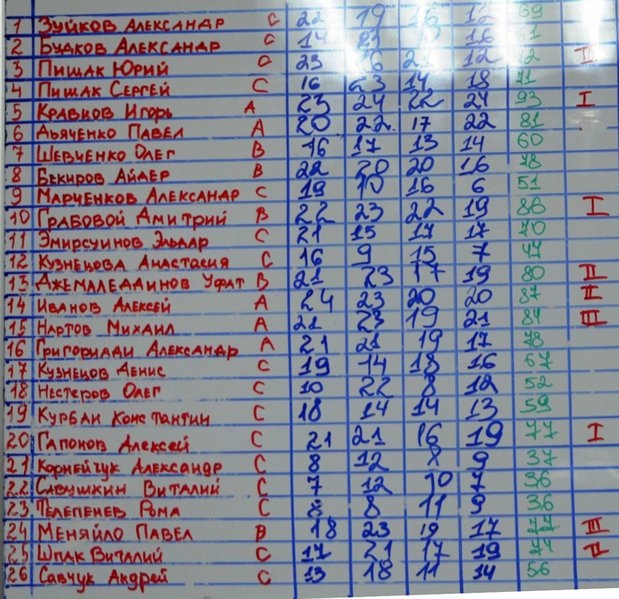 1 Зуйков Александр С 22 19 16 12 69
2 Будков Александр С 14 21 16 51
3 Пишак Юрий С 23 16 12 I
4 Пишак Сергей С 16 23 14 18 71
5 Кравцов Игорь А 23 24 22 24 93 I
6 Дьяченко Павел А 20 22 17 22 81
7 Шевченко Олег В 16 17 13 14 60
8 Бекиров Айдер В 22 20 20 16 78
9 Марченков Александр С 19 10 16 6 51
10 Грабовой Дмитрий В 22 23 22 19 86 I
11 Эмирсуинов Эльдар С 21 15 17 17 70
12 Кузнецова Анастасия С 16 9 15 7 47
13 Джемалединов Уфат В 21 23 17 19 80 III
14 Иванов Алексей А 24 23 20 20 87 II
15 Нартов Михаил А 21 23 19 21 84 III
16 Григориади Александр А 21 21 19 17 78
17 Кузнецов Денис С 19 14 18 16 67
18 Нестеров Олег С 10 22 8 12 52
19 Курбан Константин С 18 14 14 13 59
20 Гапонов Алексей С 21 21 16 19 77 I
21 Корнейчук Александр С 8 12 8 9 37
22 Савушкин Виталий С 7 12 10 7 36
23 Телепенев Рома С 8 8 11 9 36
24 Меняйло Павел В 18 23 19 17 77 III
25 Шпак Виталий С 17 21 17 19 74 II
26 Савчук Андрей С 13 18 11 14 56